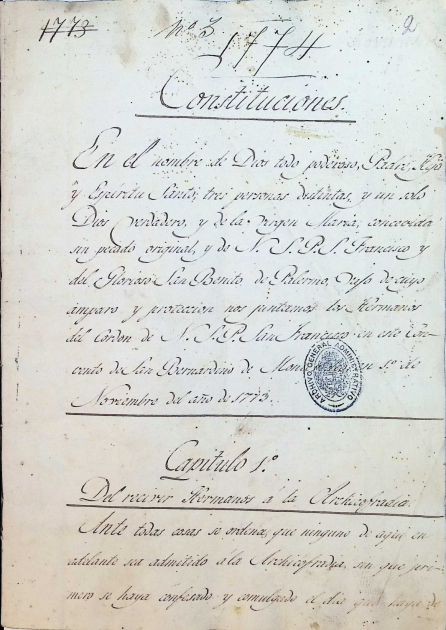 1773
Nº 3
2
1774
Constituciones.
En el nombre de Dios todo poderoso, Padre, Hijo
y Espiritu Santo, tres personas distintas, y un solo
Dios verdadero, y de la Virgen Maria, concevida
sin pecado original, y de N. S. P. S. Francisco y
del Glorioso San Benito de Palermo, vajo de cuyo
amparo y proteccion nos juntamos los Hermanos
del Cordon de N. S. P. San Francisco en este Con-
vento de San Bernardino de en 1º de
Noviembre del año de 1773.
ARCHIVO GENERAL ADMINISTRATIVO
Capitulo 1º
Del recivir Hermanos á la Archicofradia.
Ante todas cosas se ordena, que ninguno de aqui en
adelante sea admitido á la Archicofradia, sin que pri-
mero se haya confesado y comulgado el dia que haya de